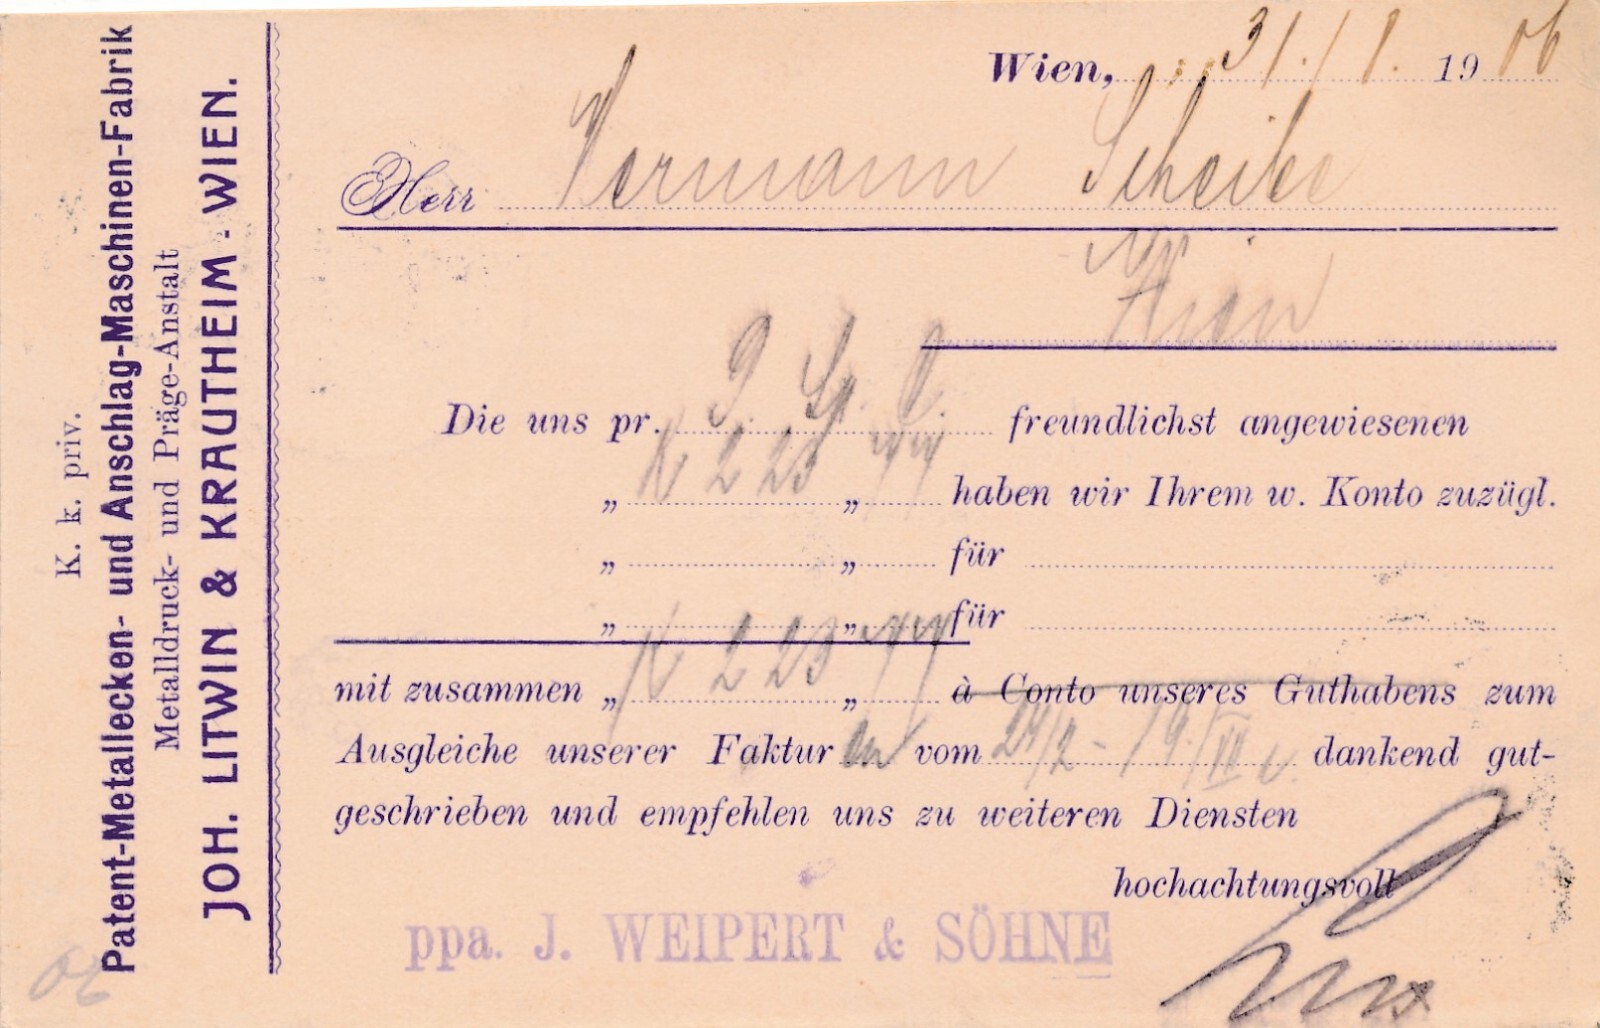 K. k. priv.
Patent-Metallecken- und Anschlag-Maschinen-Fabrik
Metalldruck- und Präge-Anstalt
JOH. LITWIN & KRAUTHEIM - WIEN.
Wien, 31/ 8. 1906
Herr Hermann Scheibe
Wien
Die uns pr. freundlichst angewiesenen
„ K 223 „ haben wir Ihrem w. Konto zuzügl.
„ „ für
„ „ für
mit zusammen „ K 223 „ à Conto unseres Guthabens zum
Ausgleiche unserer Fakturen vom dankend gut-
geschrieben und empfehlen uns zu weiteren Diensten
hochachtungsvoll
ppa. J. WEIPERT & SÖHNE